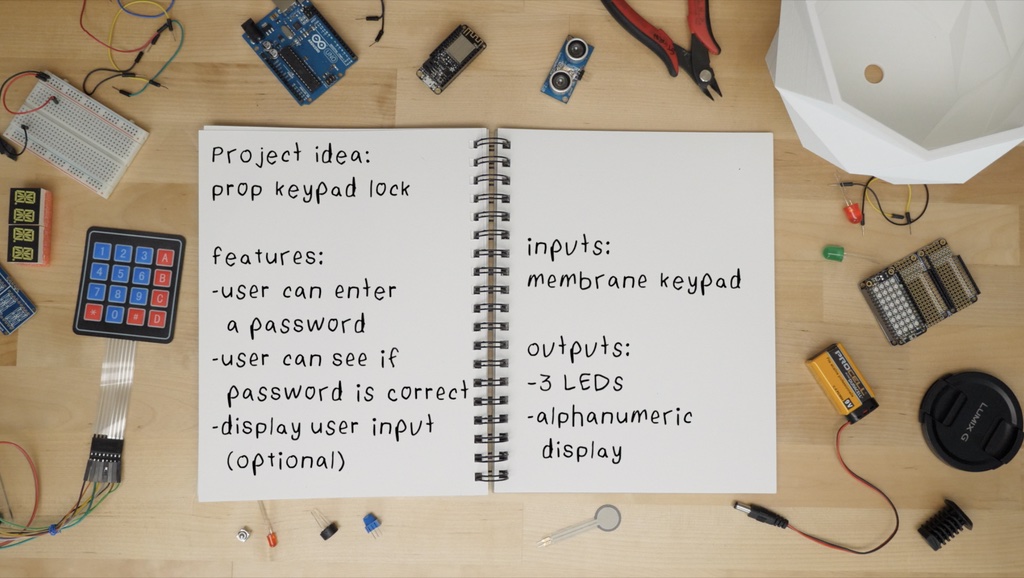 Project idea:
prop keypad lock
features:
-user can enter
a password
-user can see if
password is correct
-display user input
(optional)
inputs:
membrane keypad
outputs:
-3 LEDs
-alphanumeric
display
1 2 3 A
4 5 6 B
7 8 9 C
* 0 # D
ARDUINO
PROCELL
LUMIX G